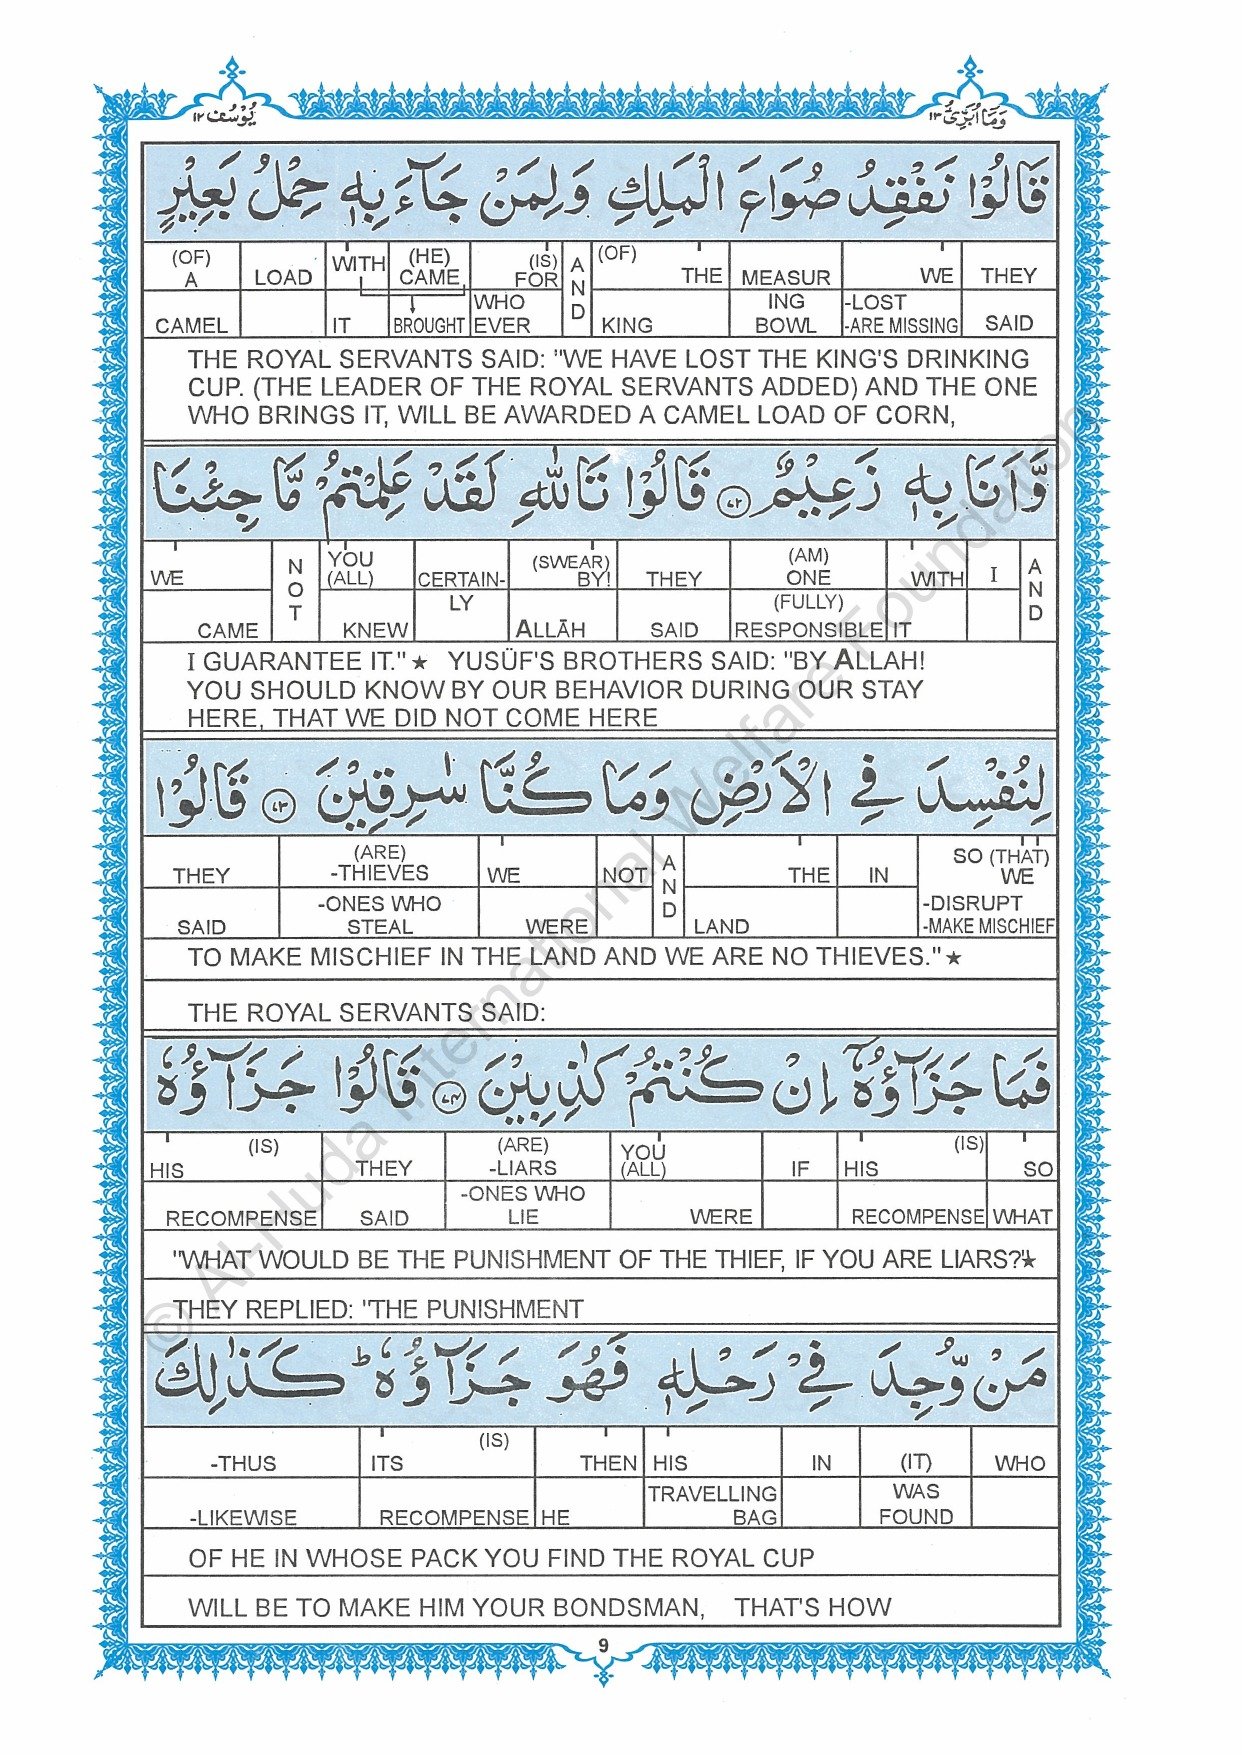 وَمَا أُبَرِّئُ ١٣
يُوْسُف ١٢
قَالُوْا نَفْقِدُ صُوَاعَ الْمَلِكِ وَلِمَنْ جَآءَ بِهٖ حِمْلُ بَعِيْرٍ
(OF) A LOAD WITH (HE) CAME (IS) FOR AND (OF) THE MEASUR WE THEY
CAMEL IT BROUGHT WHO EVER KING ING BOWL -LOST -ARE MISSING SAID
THE ROYAL SERVANTS SAID: "WE HAVE LOST THE KING'S DRINKING
CUP. (THE LEADER OF THE ROYAL SERVANTS ADDED) AND THE ONE
WHO BRINGS IT, WILL BE AWARDED A CAMEL LOAD OF CORN,
وَّاَنَا بِهٖ زَعِيْمٌ ۝٧٢ قَالُوْا تَاللّٰهِ لَقَدْ عَلِمْتُمْ مَّا جِئْنَا
WE NOT YOU (ALL) CERTAIN- (SWEAR) BY! THEY (AM) ONE WITH I AND
CAME KNEW LY ALLĀH SAID (FULLY) RESPONSIBLE IT
I GUARANTEE IT." ★ YUSÜF'S BROTHERS SAID: "BY ALLAH!
YOU SHOULD KNOW BY OUR BEHAVIOR DURING OUR STAY
HERE, THAT WE DID NOT COME HERE
لِنُفْسِدَ فِي الْاَرْضِ وَمَا كُنَّا سٰرِقِيْنَ ۝٧٣ قَالُوْا
THEY (ARE) -THIEVES WE NOT AND THE IN SO (THAT) WE
SAID -ONES WHO STEAL WERE LAND -DISRUPT -MAKE MISCHIEF
TO MAKE MISCHIEF IN THE LAND AND WE ARE NO THIEVES." ★
THE ROYAL SERVANTS SAID:
فَمَا جَزَآؤُهٗٓ اِنْ كُنْتُمْ كٰذِبِيْنَ ۝٧٤ قَالُوْا جَزَآؤُهٗ
HIS (IS) THEY (ARE) -LIARS YOU (ALL) IF HIS (IS) SO
RECOMPENSE SAID -ONES WHO LIE WERE RECOMPENSE WHAT
"WHAT WOULD BE THE PUNISHMENT OF THE THIEF, IF YOU ARE LIARS?"★
THEY REPLIED: "THE PUNISHMENT
مَنْ وُّجِدَ فِيْ رَحْلِهٖ فَهُوَ جَزَآؤُهٗ ؕ كَذٰلِكَ
-THUS ITS (IS) THEN HIS IN (IT) WHO
-LIKEWISE RECOMPENSE HE TRAVELLING BAG WAS FOUND
OF HE IN WHOSE PACK YOU FIND THE ROYAL CUP
WILL BE TO MAKE HIM YOUR BONDSMAN, THAT'S HOW
9
© Al-Huda International Welfare Foundation